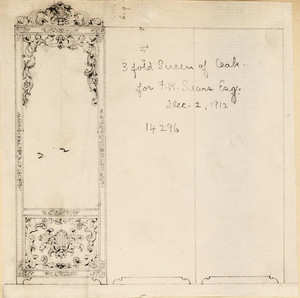 3 fold Screen of Oak.
for F.R. Sears Esq.
Dec. 2, 1912
14296
2 2